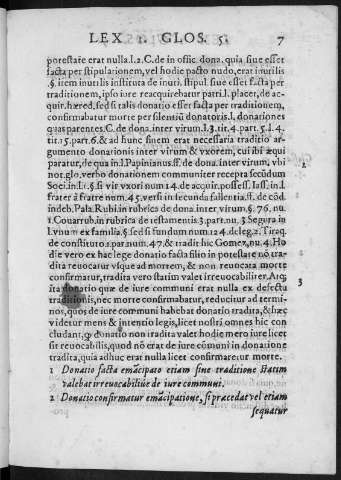 LEX 1. GLOS. 5. 7
potestate erat nulla.l.2.C.de in offic. dona. quia siue esset
facta per stipulationem, vel hodie pacto nudo, erat inutilis
§.item inutilis institu.ca de inuti. stipul. siue esset facta per
traditionem, ipso iure reacquirebatur patri.l. placet, de ac-
quir.hæred. sed si talis donatio esset facta per traditionem,
confirmabatur morte per silentiū donatoris.l. donationes
quas parentes.C.de dona.inter virum.l.3.tit.4.part.5.l.4.
tit.15.part.6.& ad hunc finem erat necessaria traditio ar-
gumento donationis inter virum & vxorem, cui ibi æqui
paratur, de qua in.l.Papinianus.ff.de dona.inter virum.vbi
nor.glo.verbo donationem communiter recepta secūdum
Soci.in.l.1.§.si vir vxori num 14.de acquir.possess. Iass.in.l.
frater à fratre num.45.versi in secunda fallentia.ff.de cōd.
indeb.Pala.Rubi.in rubrica de dona.inter virum.§.76.nu.
1.Couarrub.in rubrica de testamentis 3.part.nu.3 Segura in
l.vnum ex familia.§ sed si fundum num.124.deleg.2.Tiraq.
de constituto 1.par num.47.& tradit hic Gomez,nu.4.Ho
die vero ex hac lege donatio facta filio in potestate nō tra-
dita reuocatur vsque ad mortem, & non reuocata morte
confirmatur, tradita vero statim valet irreuocabiliter. Atq;
ita donatio quæ de iure communi erat nulla ex defectu
traditionis, nec morte confirmabatur, reducitur ad termi-
nos, quos de iure communi habebat donatio tradita, & hæc
videtur mens & intentio legis, licet nostri omnes hic con
cludant, q donatio non tradita valet hodie mero iure licet
sit reuocabilis, quod nō erat de iure cōmuni in donatione
tradita, quia adhuc erat nulla licet confirmaretur morte.
2
3
1 Donatio facta emācipato etiam sine traditione statim
valebat irreuocabiliter de iure communi.
2 Donatio confirmatur emācipatione, si præcedat vel etiam
sequatur